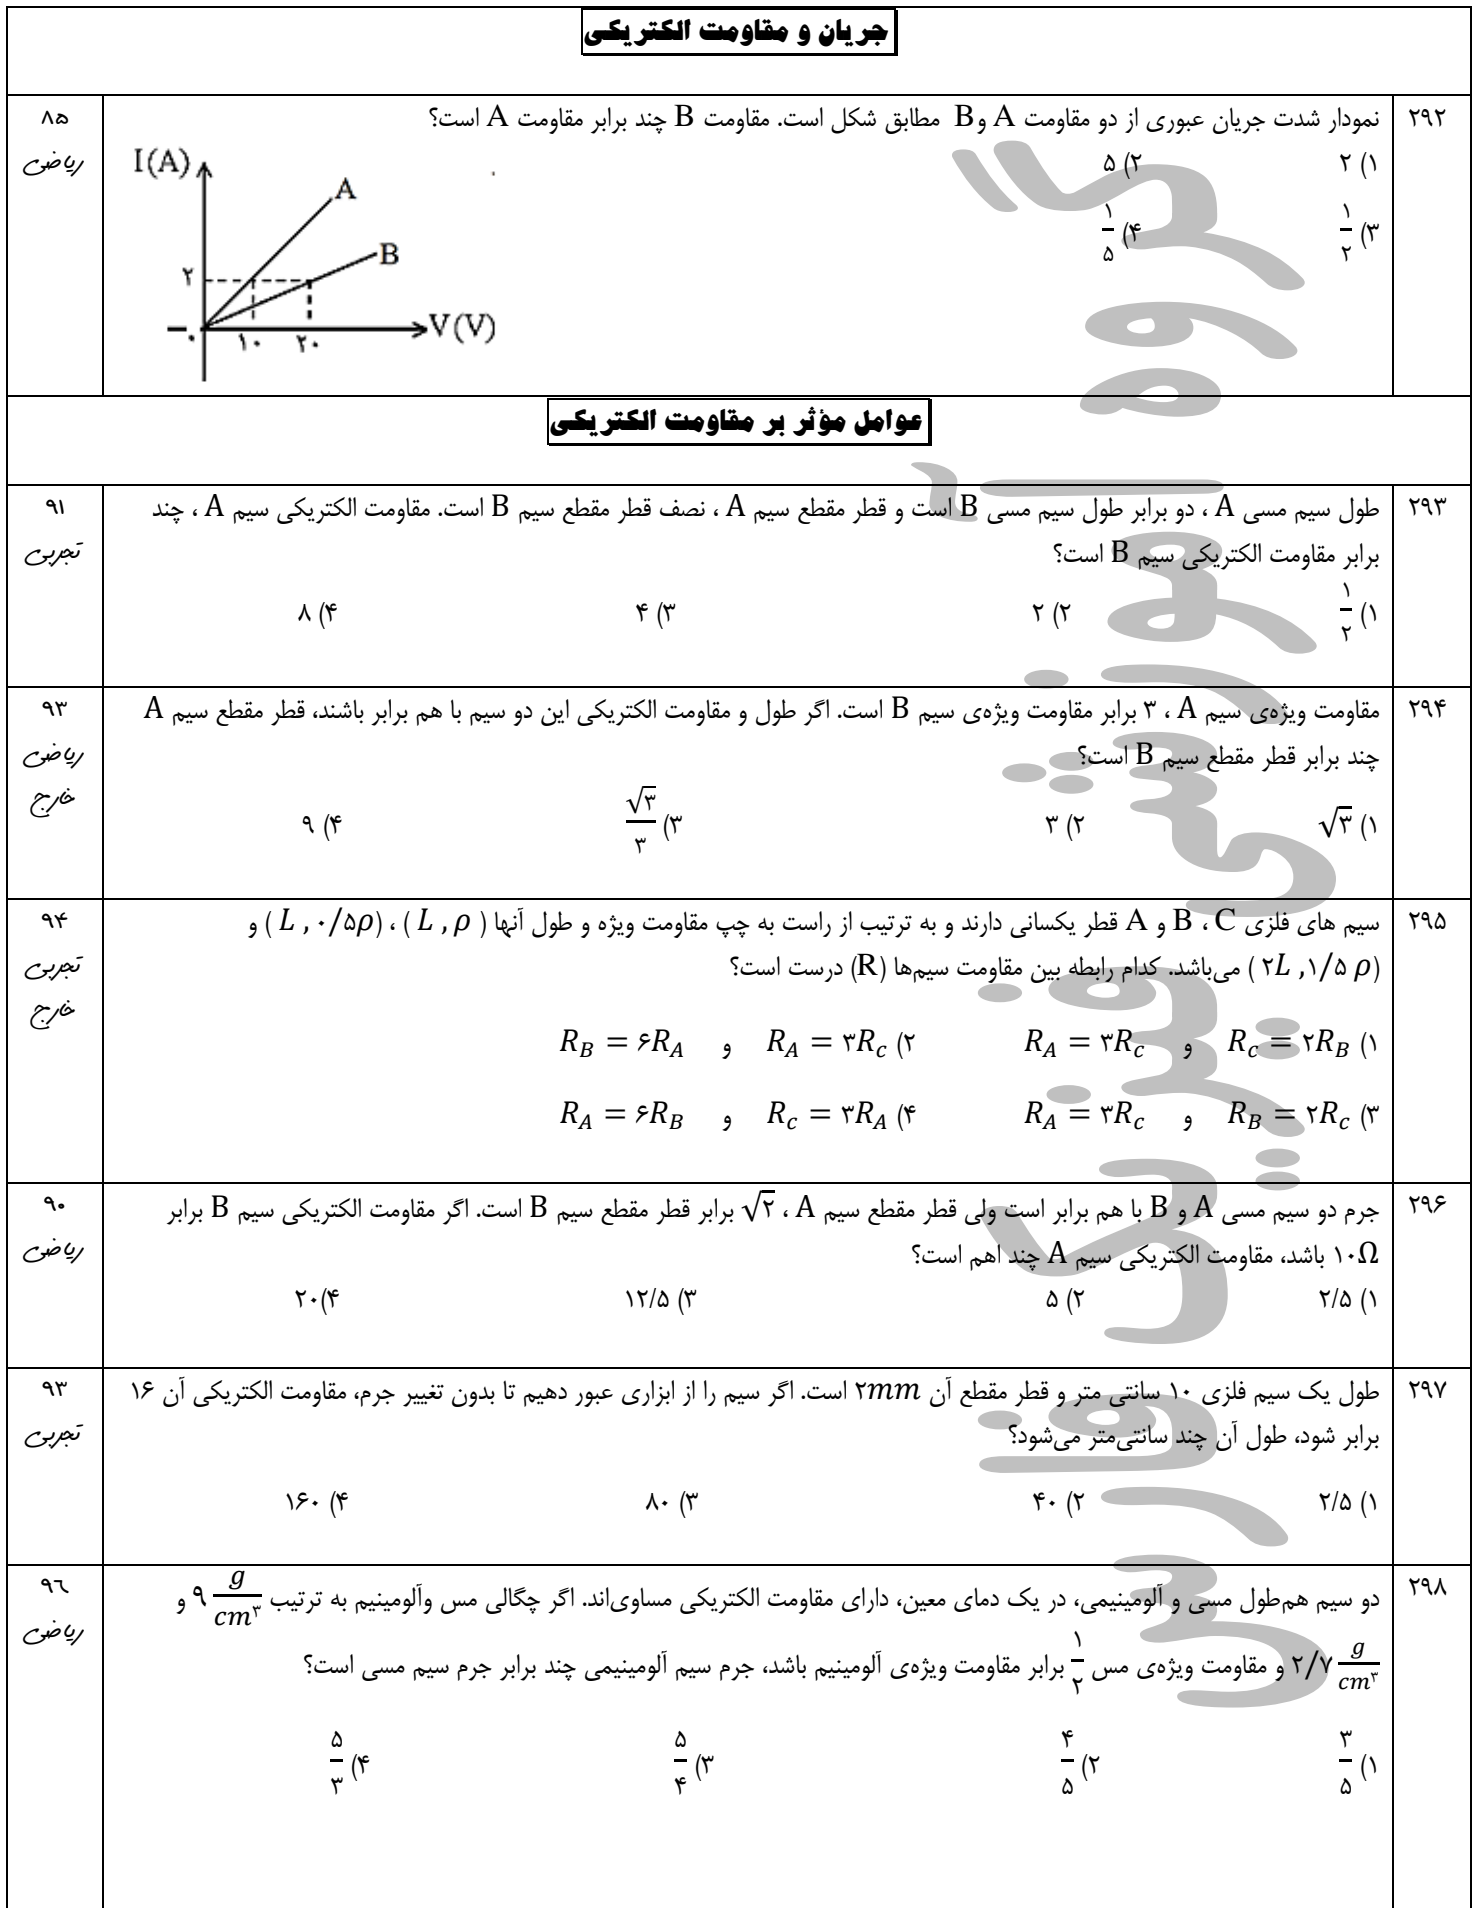 جریان و مقاومت الکتریکی
۲۹۲
نمودار شدت جریان عبوری از دو مقاومت A و B مطابق شکل است. مقاومت B چند برابر مقاومت A است؟
۸۵
ریاضی
۱) ۲ ۲) ۵
۳) ۱/۲ ۴) ۱/۵
I(A)
A
B
۲
۰ ۱۰ ۲۰ V(V)
عوامل مؤثر بر مقاومت الکتریکی
۲۹۳
طول سیم مسی A ، دو برابر طول سیم مسی B است و قطر مقطع سیم A ، نصف قطر مقطع سیم B است. مقاومت الکتریکی سیم A ، چند
برابر مقاومت الکتریکی سیم B است؟
۱) ۱/۲ ۲) ۲ ۳) ۴ ۴) ۸
۹۱
تجربی
۲۹۴
مقاومت ویژه‌ی سیم A ، ۳ برابر مقاومت ویژه‌ی سیم B است. اگر طول و مقاومت الکتریکی این دو سیم با هم برابر باشند، قطر مقطع سیم A
چند برابر قطر مقطع سیم B است؟
۱) √۳ ۲) ۳ ۳) √۳/۳ ۴) ۹
۹۳
ریاضی
خارج
۲۹۵
سیم های فلزی B ، C و A قطر یکسانی دارند و به ترتیب از راست به چپ مقاومت ویژه و طول آنها ( L , ρ ) ، ( L , ۰/۵ρ ) و
( ۲L , ۱/۵ ρ ) می‌باشد. کدام رابطه بین مقاومت سیم‌ها (R) درست است؟
۱) R_c = ۲R_B و R_A = ۳R_c ۲) R_A = ۳R_c و R_B = ۶R_A
۳) R_B = ۲R_c و R_A = ۳R_c ۴) R_c = ۳R_A و R_A = ۶R_B
۹۴
تجربی
خارج
۲۹۶
جرم دو سیم مسی A و B با هم برابر است ولی قطر مقطع سیم A ، √۲ برابر قطر مقطع سیم B است. اگر مقاومت الکتریکی سیم B برابر
۱۰Ω باشد، مقاومت الکتریکی سیم A چند اهم است؟
۱) ۲/۵ ۲) ۵ ۳) ۱۲/۵ ۴)۲۰
۹۰
ریاضی
۲۹۷
طول یک سیم فلزی ۱۰ سانتی متر و قطر مقطع آن ۲mm است. اگر سیم را از ابزاری عبور دهیم تا بدون تغییر جرم، مقاومت الکتریکی آن ۱۶
برابر شود، طول آن چند سانتی‌متر می‌شود؟
۱) ۲/۵ ۲) ۴۰ ۳) ۸۰ ۴) ۱۶۰
۹۳
تجربی
۲۹۸
دو سیم هم‌طول مسی و آلومینیمی، در یک دمای معین، دارای مقاومت الکتریکی مساوی‌اند. اگر چگالی مس وآلومینیم به ترتیب ۹ g/cm³ و
۲/۷ g/cm³ و مقاومت ویژه‌ی مس ۱/۲ برابر مقاومت ویژه‌ی آلومینیم باشد، جرم سیم آلومینیمی چند برابر جرم سیم مسی است؟
۱) ۳/۵ ۲) ۴/۵ ۳) ۵/۴ ۴) ۵/۳
۹۶
ریاضی